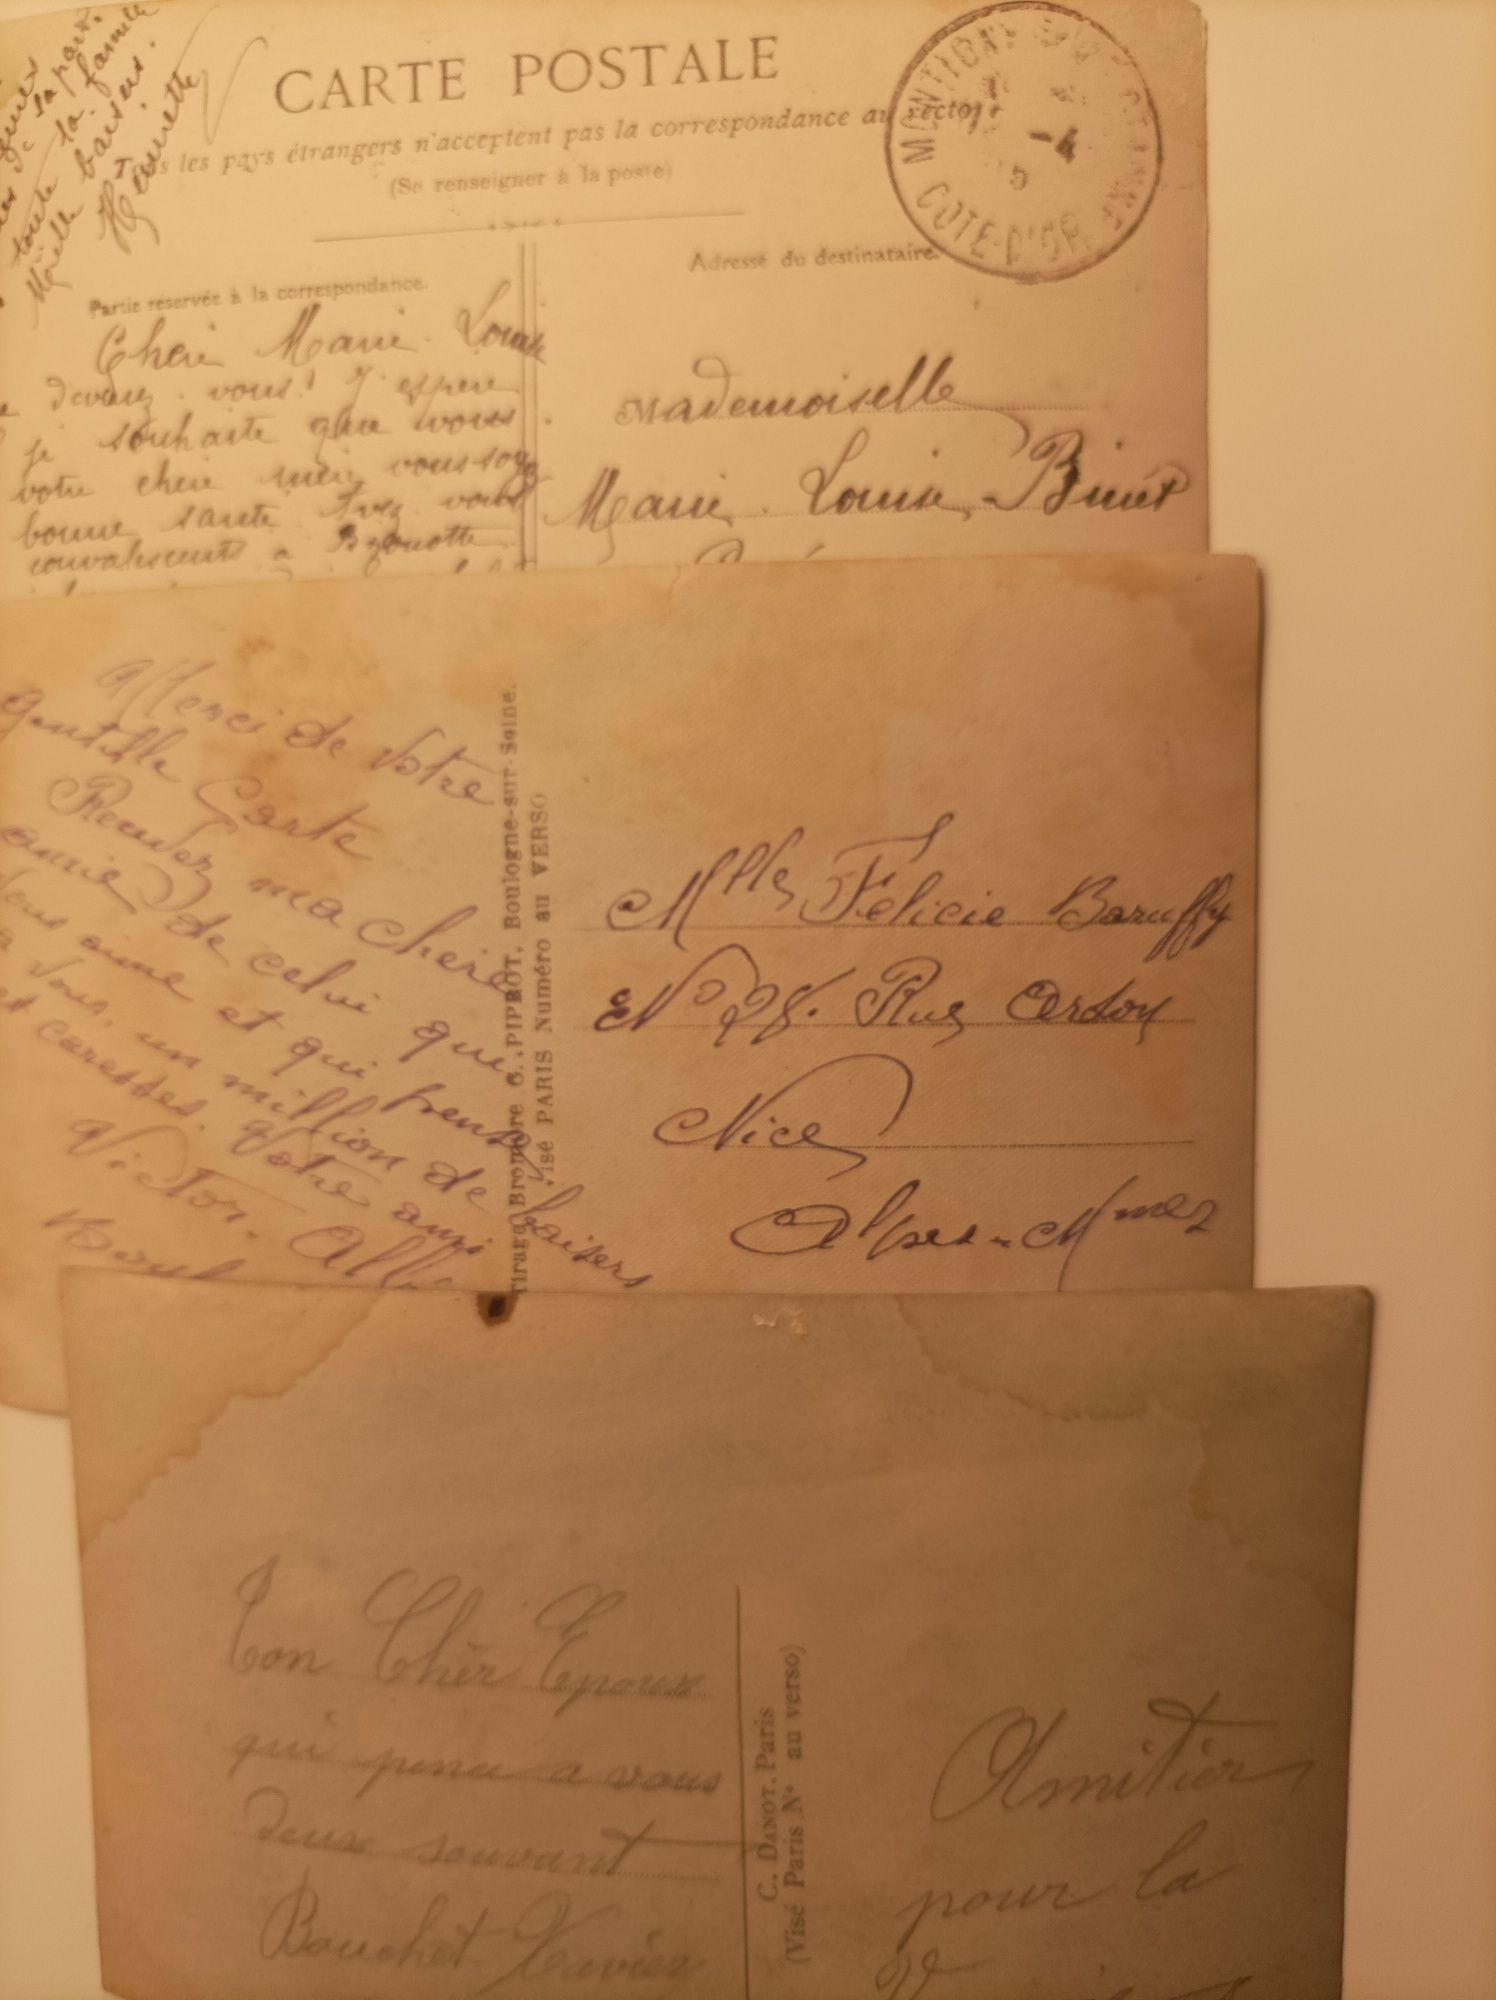 de sa part.
toute la famille
Mille baisers.
Henriette
CARTE POSTALE
Tous les pays étrangers n'acceptent pas la correspondance au recto
(Se renseigner à la poste)
MONTIGNY
COTE-D'OR
-4
Partie réservée à la correspondance.
Adresse du destinataire.
Chere Marie Louise
devenez vous! J'espere
je souhaite que vous
votre chere mère vous soyez
bonne santé. Avez vous
convalescents a
Mademoiselle
Marie Louise Binet
Merci de Votre
Gentille Carte
Recevez ma chère
amie de celui que
Vous aime et qui pense
a Vous, un million de baisers
et caresses. Votre ami
Victor.
Tirage Bromure G. PIPROT, Boulogne-sur-Seine.
Visé PARIS Numéro au VERSO
Mlle Félicie Baruffy
No 28. Rue Arson
Nice
Alpes-Mmes
Ton Chèr Epoux
qui pense a vous
deux souvant
Bouchet Xavier
C. DANOT, Paris
(Visé Paris N° au verso)
Amitier
pour la